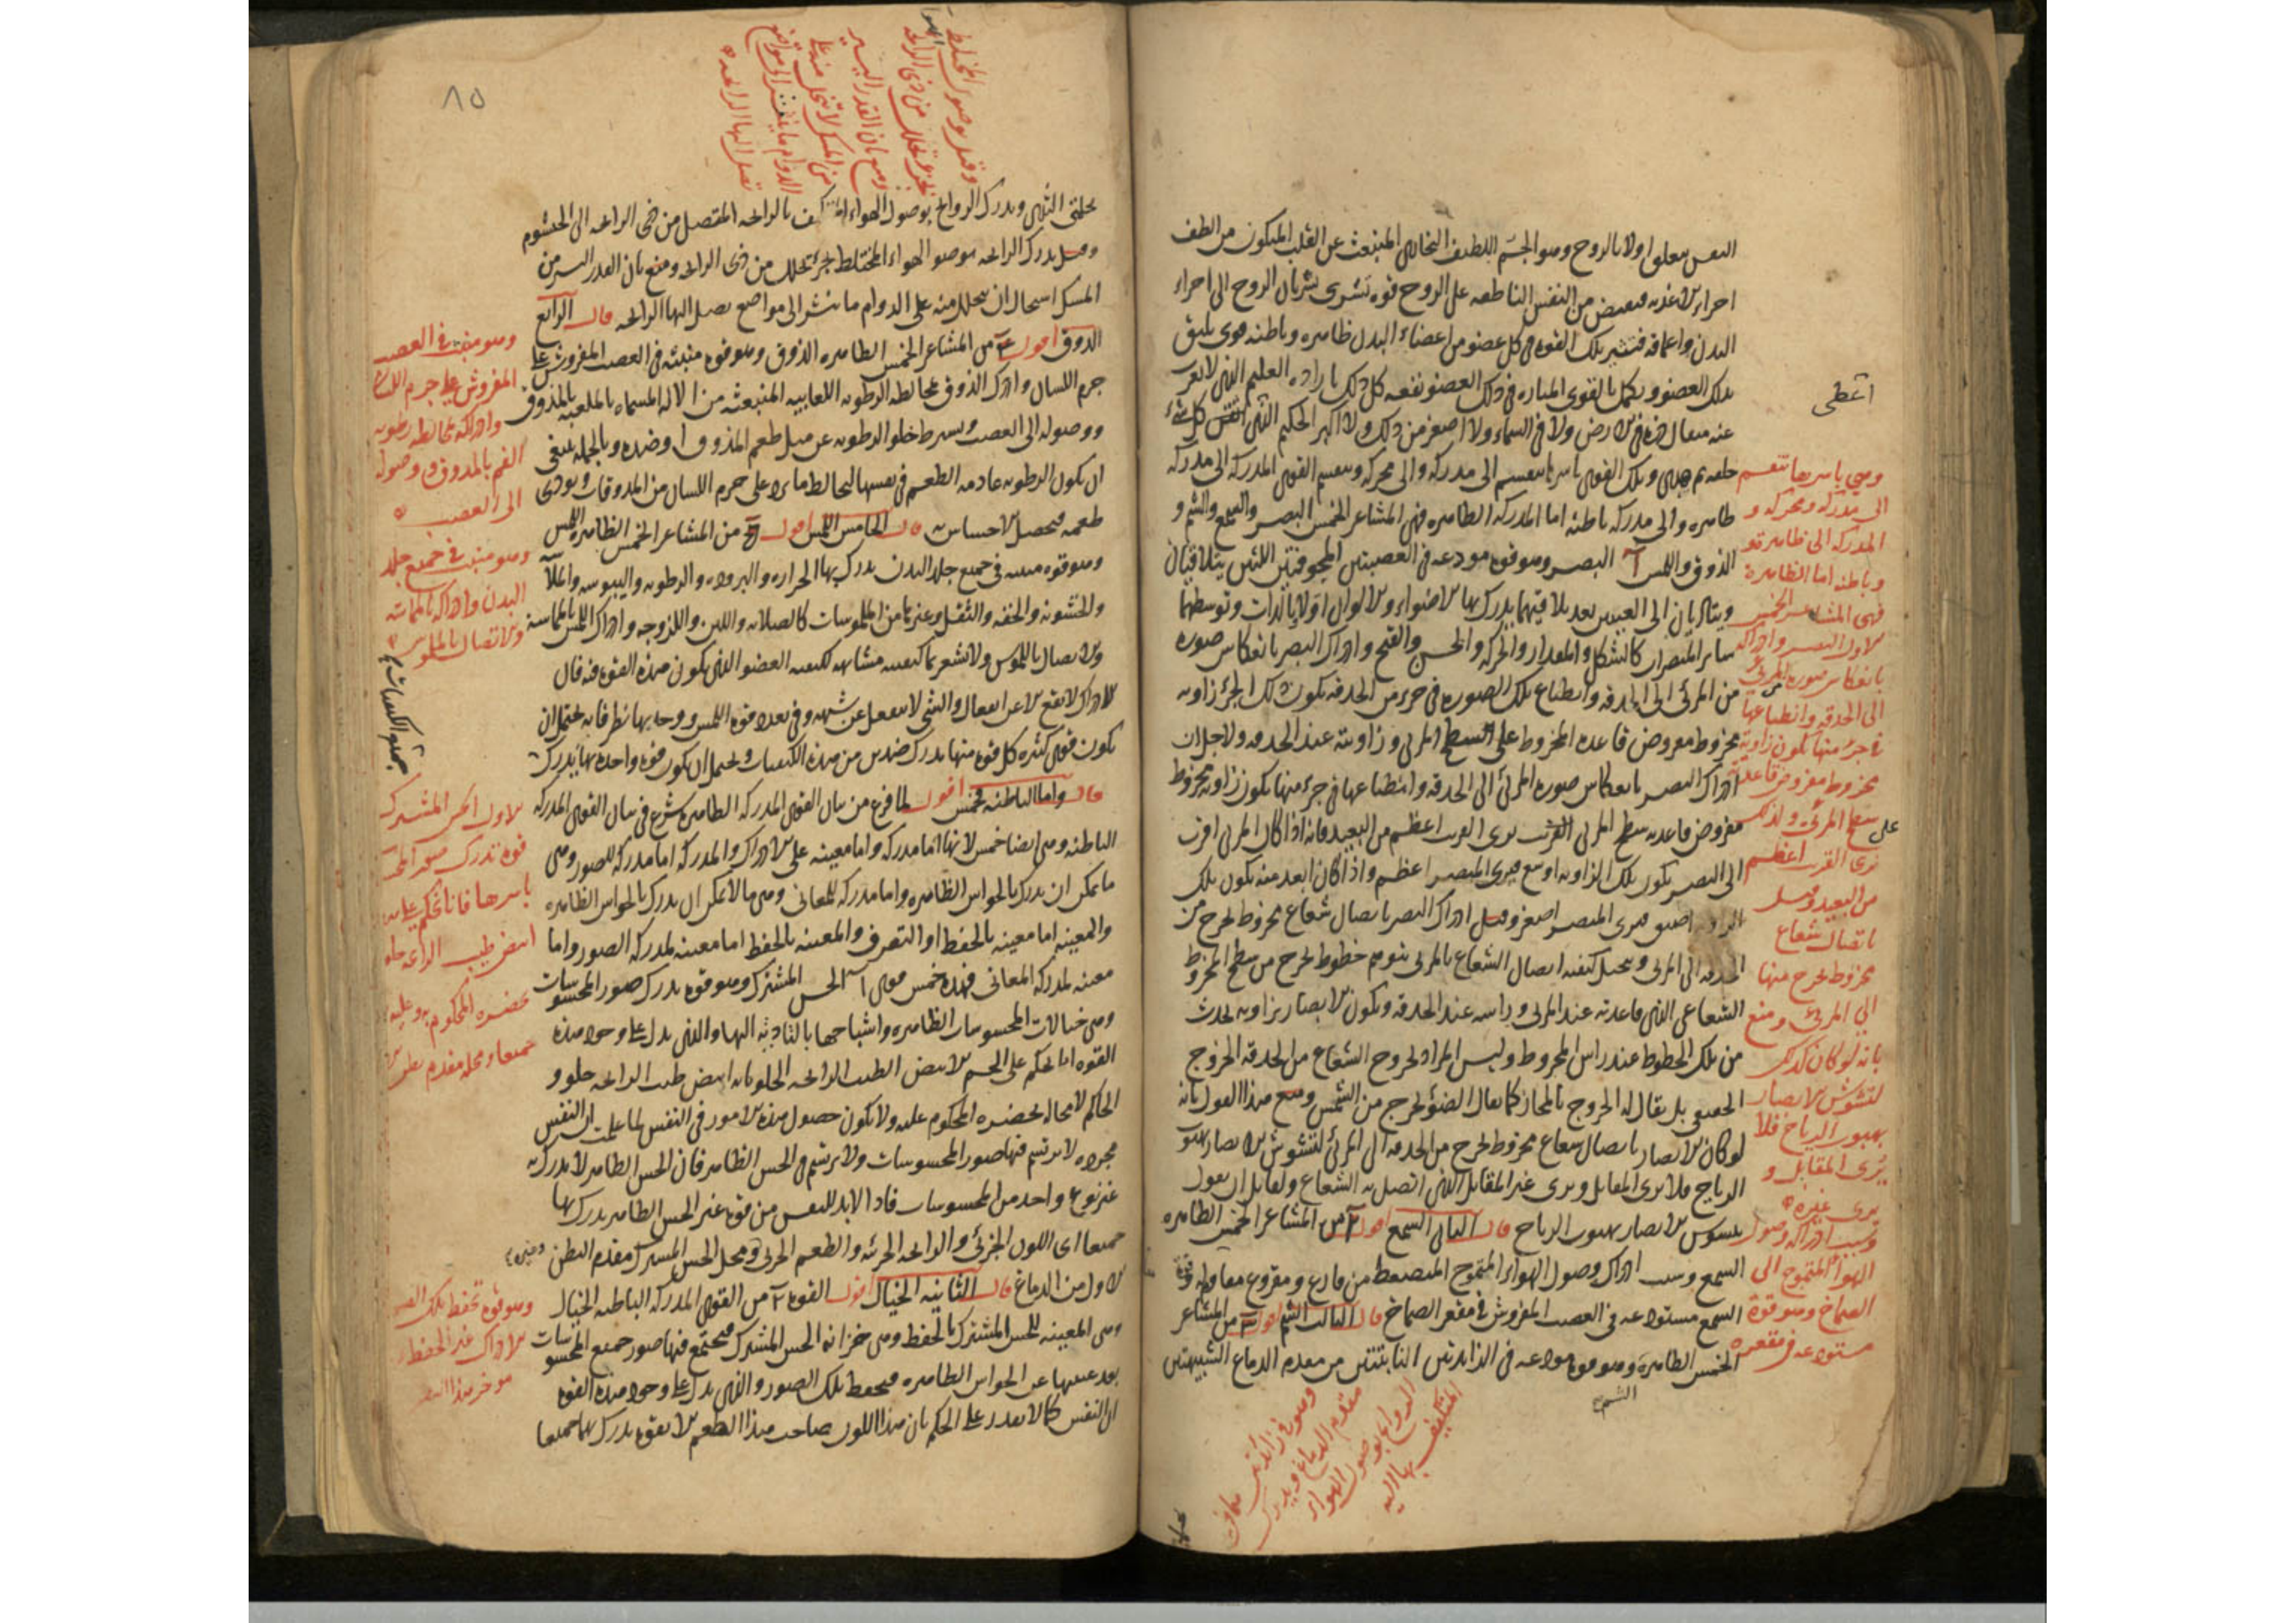 النفس تتعلق اولا بالروح وهو الجسم اللطيف البخاري المنبعث عن القلب المتكون من الطف
اجزاء الاغذية فيفيض من النفس الناطقة على الروح قوة تسري بسريان الروح الى اجزاء
البدن واعماقه فتثير تلك القوة في كل عضو من اعضاء البدن ظاهره وباطنه قوى يليق
بذلك العضو ويكمل بالقوى المثارة في ذلك العضو نفعه كل ذلك بارادة العليم الذي لا يعزب
عنه مثقال ذرة في الارض ولا في السماء ولا اصغر من ذلك ولا اكبر الحكيم الذي اتقن كل شيء
خلقه ثم هدى وتلك القوى باسرها تنقسم الى مدركة والى محركة وتنقسم القوى المدركة الى مدركة
ظاهرة والى مدركة باطنة اما المدركة الظاهرة فهي المشاعر الخمس البصر والسمع والشم و
الذوق واللمس آ البصر وهو قوة مودعة في العصبتين المجوفتين اللتين يتلاقيان
ويتاديان الى العينين بعد تلاقيهما يدرك بها الاضواء والالوان اولا بالذات وبتوسطهما
سائر المبصرات كالشكل والمقدار والحركة والحسن والقبح وادراك البصر بانعكاس صورة
من المرئي الى الحدقة وانطباع تلك الصورة في جزء من الحدقة يكون ذلك الجزء زاوية
مخروط مفروض قاعدة المخروط على السطح المرئي وزاويته عند الحدقة ولاجل ان
ادراك البصر بانعكاس صورة المرئي الى الحدقة وانطباعها في جزء منها يكون زاوية مخروط
مفروض قاعدته سطح المرئي القريب يرى القريب اعظم من البعيد فانه اذا كان المرئي اقرب
الى البصر يكون تلك الزاوية اوسع فيرى المبصر اعظم واذا كان ابعد منه يكون تلك
الزاوية اضيق فيرى المبصر اصغر وقيل ادراك البصر باتصال شعاع مخروط يخرج من
الحدقة الى المرئي وتخيل كيفية اتصال الشعاع بالمرئي بتوهم خطوط تخرج من سطح المخروط
الشعاعي الذي قاعدته عند المرئي وراسه عند الحدقة ويكون الابصار بزاوية تحدث
من تلك الخطوط عند راس المخروط وليس المراد بخروج الشعاع من الحدقة الخروج
الحقيقي بل يقال له الخروج بالمجاز كما يقال الضوء يخرج من الشمس ومنع هذا القول بانه
لو كان الابصار باتصال شعاع مخروط يخرج من الحدقة الى المرئي لتشوش الابصار بهبوب
الرياح فلا يرى المقابل ويرى غير المقابل الذي اتصل به الشعاع ولقائل ان يقول
بتشوش الابصار بهبوب الرياح قال الثاني السمع اقول ٢ من المشاعر الخمس الظاهرة
السمع وسبب ادراك وصول الهواء المتموج المنضغط من قارع ومقروع مقاوم له قوة
السمع مستودعة في العصب المفروش في مقعر الصماخ قال الثالث الشم اقول ٣ من المشاعر
الخمس الظاهرة وهو قوة مودعة في الزائدتين النابتتين من مقدم الدماغ الشبيهتين
الشم
اعطى
وهي باسرها تنقسم
الى مدركة ومحركة و
المدركة الى ظاهرة
وباطنة اما الظاهرة
فهي المشاعر الخمس
الاول البصر وادراكه
بانعكاس صورة من المرئي
الى الحدقة وانطباعها
في جزء منها يكون زاوية
مخروط مفروض قاعدته
على سطح المرئي ولذلك
نرى القريب اعظم
من البعيد وقيل
باتصال شعاع
مخروط يخرج منها
الى المرئي ومنع
بانه لو كان كذلك
لتشوش الابصار
بهبوب الرياح فلا
يرى المقابل و
يرى غيره
وسبب ادراكه وصول
الهواء المتموج الى
الصماخ وهو قوة
مستودعة في مقعره
مقدم الدماغ ويدرك
الروائح بوصول الهواء
المتكيف بها اليه
٨٥
وقيل بوصول المختلط
بجزء تحلل من ذي الرائحة
ومنع بان القدر اليسير
من المسك لا يتحلل منه على
الدوام ما ينتشر الى مواضع
تصل اليها الرائحة
بحلمتي الثدي ويدرك الروائح بوصول الهواء المتكيف بالرائحة المتصل من ذي الرائحة الى الخيشوم
وقيل يدرك الرائحة بوصول الهواء المختلط بجزء تحلل من ذي الرائحة ومنع بان القدر اليسير من
المسك استحال ان يتحلل منه على الدوام ما ينتشر الى مواضع يصل اليها الرائحة قال الرابع
الذوق اقول ٤ من المشاعر الخمس الظاهرة الذوق وهو قوة منبثة في العصب المفروش على
جرم اللسان وادراك الذوق بمخالطة الرطوبة اللعابية المنبعثة من الالة المسماة بالملعبة بالمذوق
ووصوله الى العصب ويشترط خلو الرطوبة عن مثل طعم المذوق او ضده وبالجملة ينبغي
ان يكون الرطوبة عادمة الطعم في نفسها لتخالط ما يرد على جرم اللسان من المذوقات ويودي
طعمه فيحصل الاحساس به قال الخامس اللمس اقول ٥ من المشاعر الخمس الظاهرة اللمس
وهو قوة منبثة في جميع جلد البدن يدرك بها الحرارة والبرودة والرطوبة واليبوسة والملاسة
والخشونة والخفة والثقل وغيرها من الملموسات كالصلابة واللين واللزوجة وادراك اللمس بالمماسة
والاتصال بالملموس ولا تشعر بما كيفيته مشابهة لكيفية العضو الذي يكون هذه القوة فيه فان
الادراك لا يقع الا عن انفعال والشيء لا ينفعل عن شبهه وفي تعدد قوة اللمس ووحدتها نظر فانه يحتمل ان
يكون قوى كثيرة كل قوة منها يدرك ضدين من هذه الكيفيات ويحتمل ان يكون قوة واحدة بها يدرك
قال واما الباطنة فخمس اقول لما فرغ من بيان القوى المدركة الظاهرة شرع في بيان القوى المدركة
الباطنة وهي ايضا خمس لانها اما مدركة واما معينة على الادراك والمدركة اما مدركة للصور وهي
ما يمكن ان يدرك بالحواس الظاهرة واما مدركة للمعاني وهي ما لا يمكن ان يدرك بالحواس الظاهرة
والمعينة اما معينة بالحفظ او التصرف والمعينة بالحفظ اما معينة لمدركة الصور واما
معينة لمدركة المعاني فهذه خمس قوى آ الحس المشترك وهو قوة يدرك صور المحسوسات
وهي خيالات المحسوسات الظاهرة واشباحها بالتادية اليها والذي يدل على وجود هذه
القوة انا نحكم على الجسم الابيض الطيب الرائحة الحلو بانه ابيض طيب الرائحة حلو و
الحاكم لا محالة يحضره المحكوم عليه ولا يكون حصول هذه الامور في النفس لما علمت ان النفس
مجردة لا يرتسم فيها صور المحسوسات ولا يرتسم في الحس الظاهر فان الحس الظاهر لا يدرك به
غير نوع واحد من المحسوسات فاذا لا بد للنفس من قوة غير الحس الظاهر يدرك بها
جميعا اي اللون الجزئي والرائحة الجزئية والطعم الجزئي ومحل الحس المشترك مقدم البطن
الاول من الدماغ قال الثانية الخيال اقول القوة ٢ من القوى المدركة الباطنة الخيال
وهي المعينة للحس المشترك بالحفظ وهي خزانة الحس المشترك فيجتمع فيها صور جميع المحسوسات
بعد غيبتها عن الحواس الظاهرة فيحفظ تلك الصور والذي يدل على وجود هذه القوة
ان النفس كما لا يقدر على الحكم بان هذا اللون صاحب هذا الطعم الا بقوة يدرك بها جميعا
وهو منبث في العصب
المفروش على جرم اللسان
وادراكه بمخالطة رطوبة
الفم بالمذوق ووصوله
الى العصب
وهو منبث في جميع جلد
البدن وادراكه بالمماسة
والاتصال بالملموس
الاول الحس المشترك
قوة تدرك صور
باسرها فانا نحكم على
ابيض طيب الرائحة
يحضره المحكوم به وعليه
جميعا ومحله مقدم
وهو قوة تحفظ تلك الصور
الادراك غير الحفظ